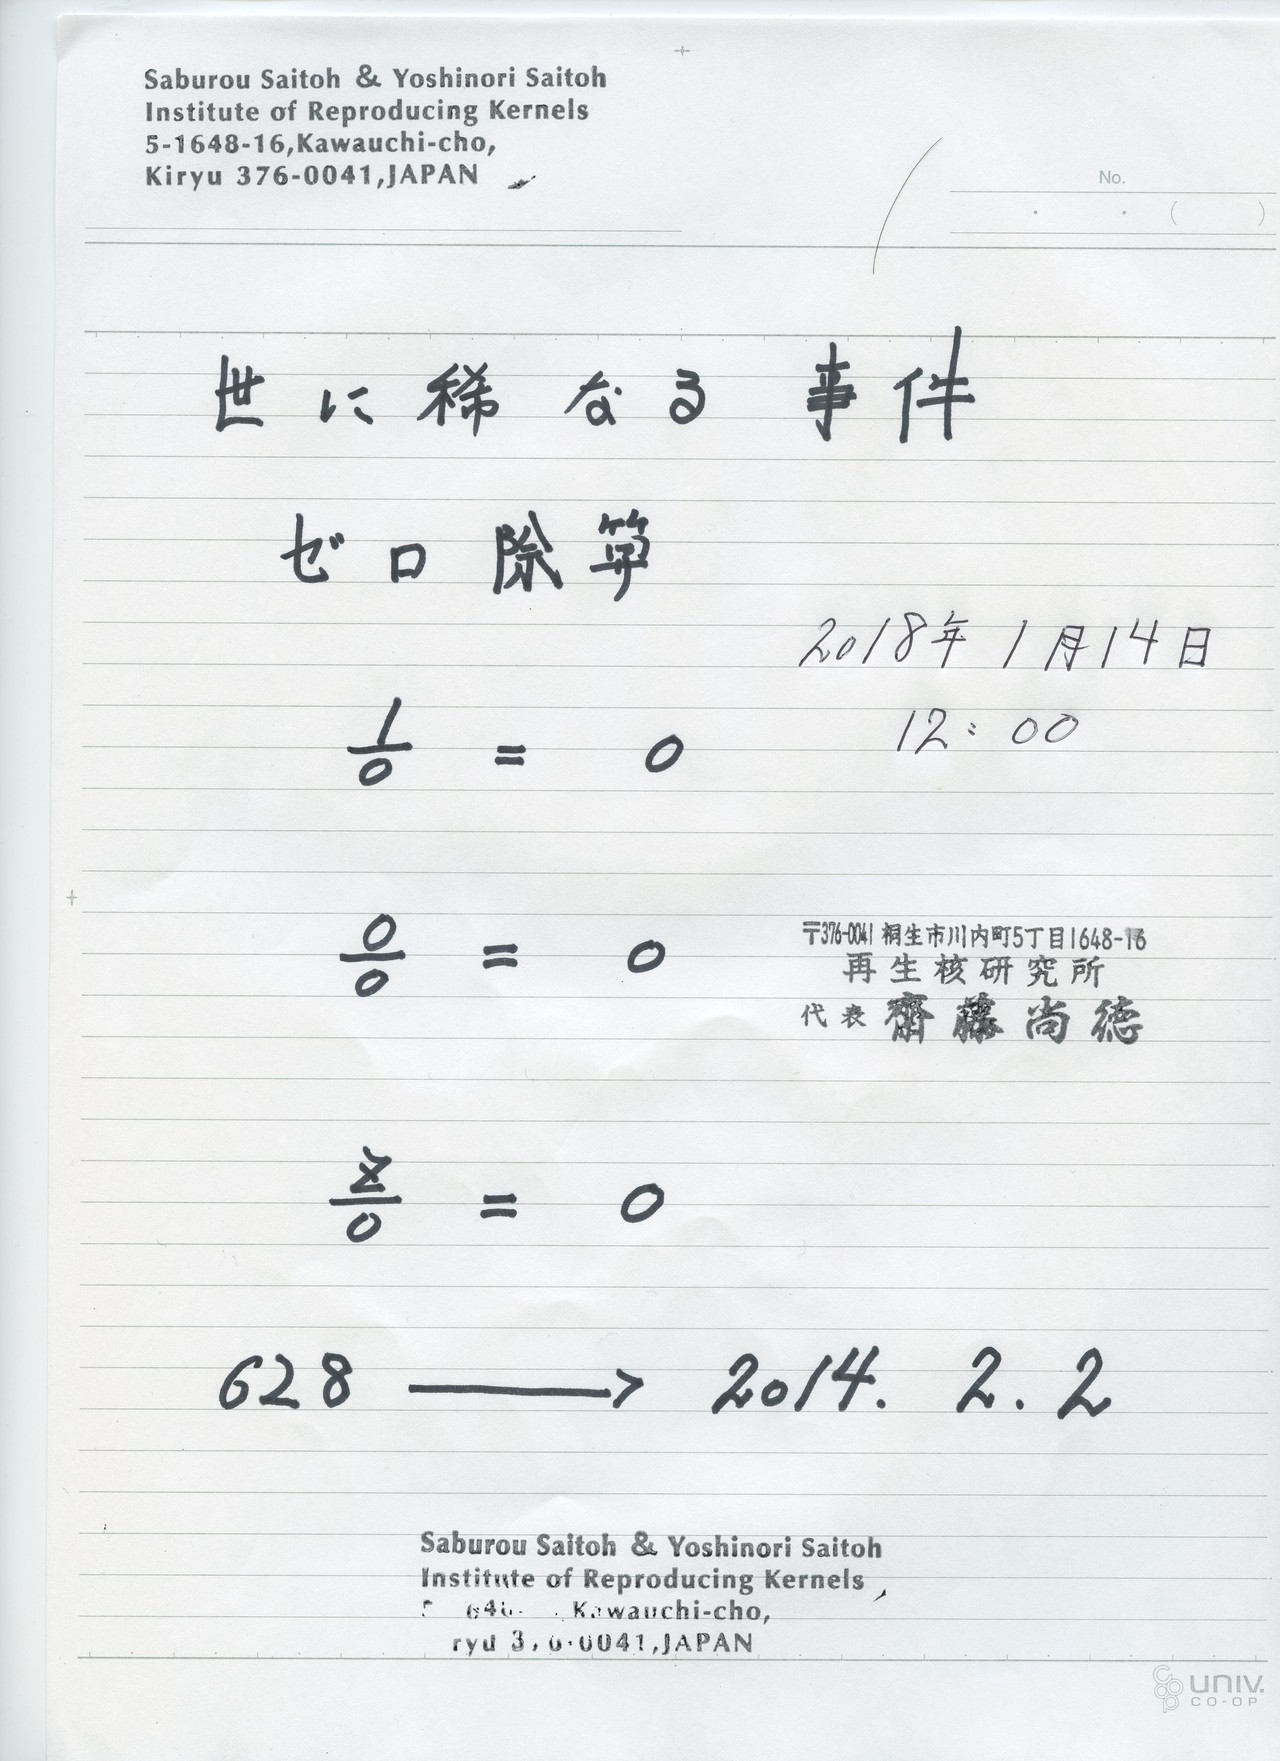 Saburou Saitoh & Yoshinori Saitoh
Institute of Reproducing Kernels
5-1648-16,Kawauchi-cho,
Kiryu 376-0041,JAPAN
No.
( )
世に稀なる事件
ゼロ除算
2018年1月14日
12:00
1/0 = 0
0/0 = 0
〒376-0041 桐生市川内町5丁目1648-16
再生核研究所
代表 齋藤尚徳
z/0 = 0
628 → 2014. 2. 2
Saburou Saitoh & Yoshinori Saitoh
Institute of Reproducing Kernels
Kawauchi-cho,
0041,JAPAN
univ.
CO-OP